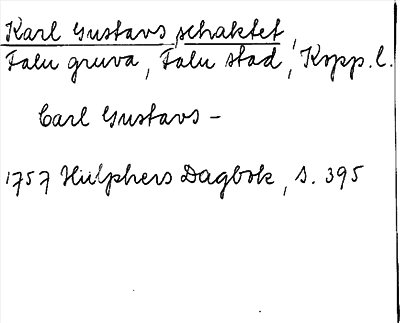 Karl Gustavs schaktet,
Falu gruva, Falu stad, Kopp.l.
Carl Gustavs –
1757 Hülphers Dagbok, s. 395